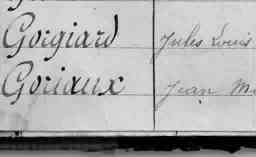 Gorgiard Jules Louis
Goriaux Jean